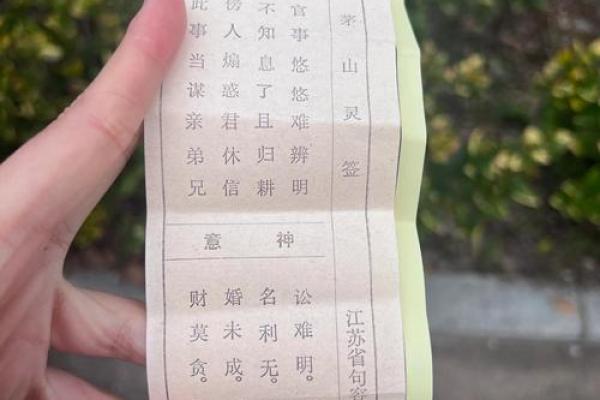 茅山灵签
江苏省句容
官事悠悠难辨明
不知息了且归耕
傍人煽惑君休信
此事当谋亲弟兄
神意
讼难明。
名利无。
婚未成。
财莫贪。